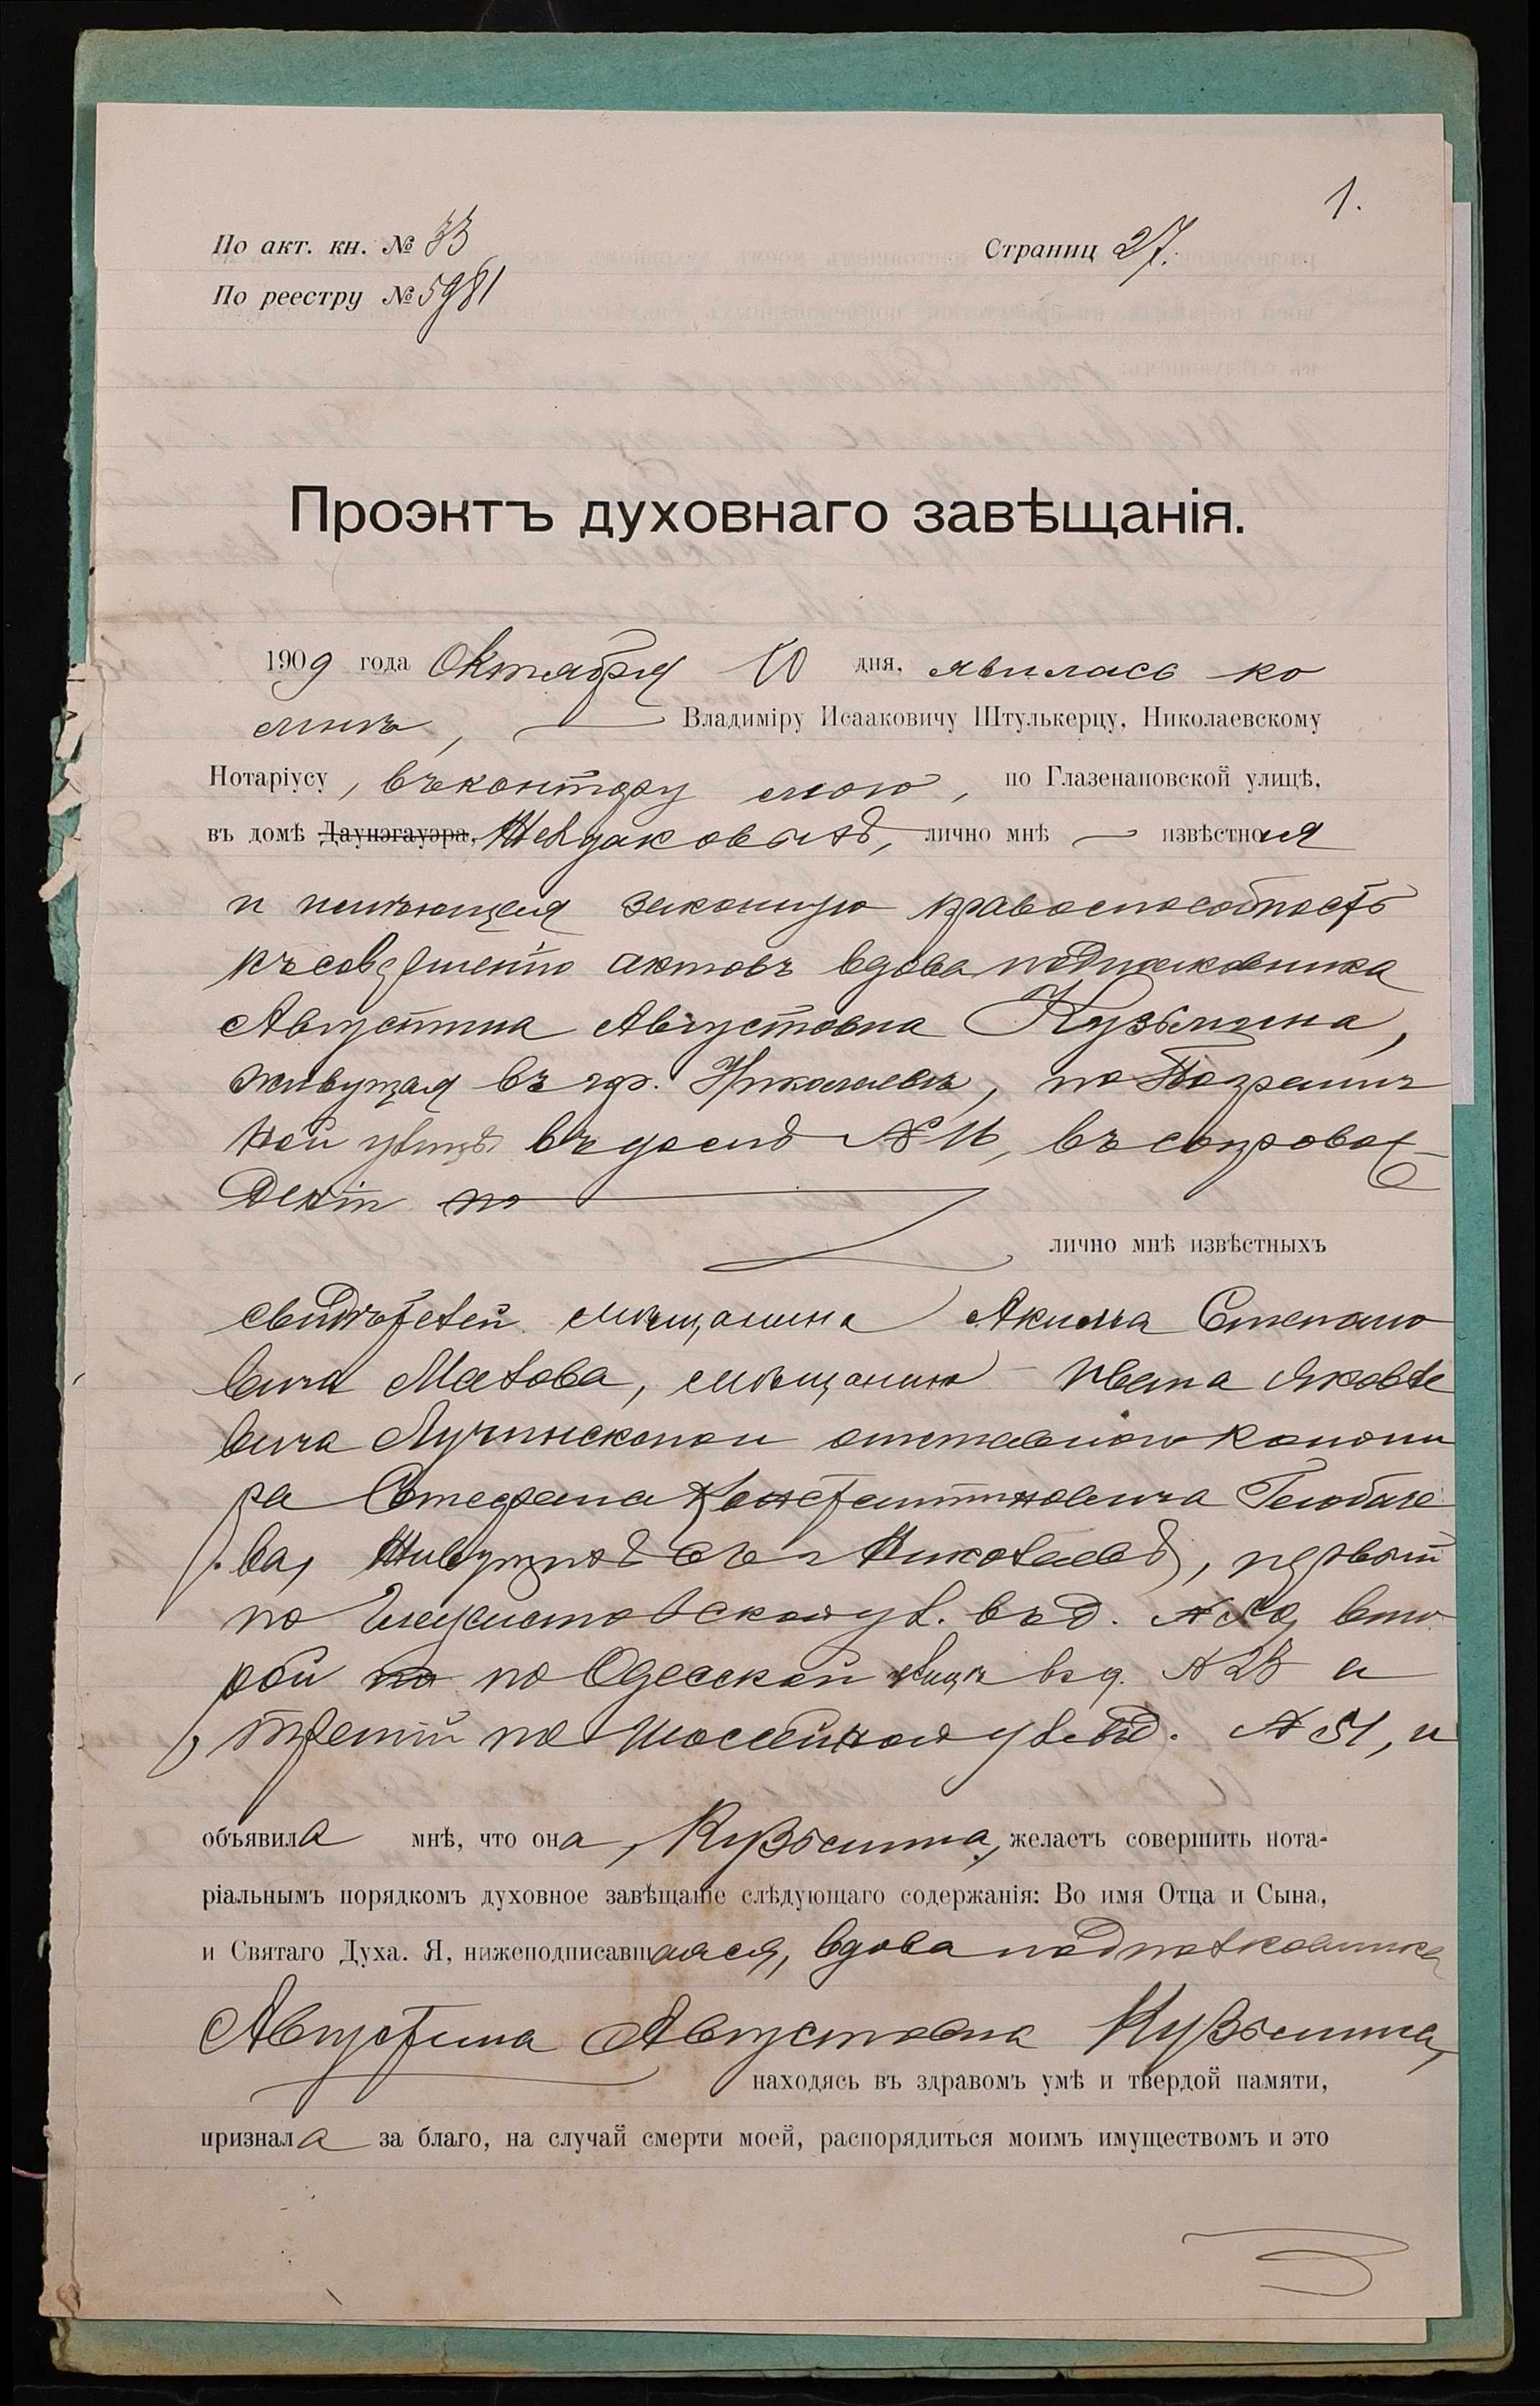 1.
По акт. кн. № 33 Страниц 27.
По реестру № 5981
Проэктъ духовнаго завѣщанія.
1909 года Октября 10 дня, явилась ко
мнѣ, Владиміру Исааковичу Штулькерцу, Николаевскому
Нотаріусу, въ контору мою, по Глазенаповской улицѣ,
въ домѣ Даунэгауэра, лично мнѣ извѣстная
и имѣющая законную правоспособность
къ совершенію актовъ вдова подполковника
Августина Августовна Кузьмина,
живущая въ гор. Николаевѣ, по Погранич
ной улицѣ въ домѣ № 16, въ сопровож
деніи по
лично мнѣ извѣстныхъ
свидѣтелей мѣщанина Акима Степано
вича Малова, мѣщанина Ивана Яковле
вича Лучинскаго и отставного канони
ра Стефана Константиновича
ва, живущихъ въ г Николаевѣ, первый
по ул. въ д. № вто
рой по по Одесской улицѣ въ д. № 25 а
третій по Шоссейной ул. въ д. № 51, и
объявила мнѣ, что она, Кузьмина, желаетъ совершить нота-
ріальнымъ порядкомъ духовное завѣщаніе слѣдующаго содержанія: Во имя Отца и Сына,
и Святаго Духа. Я, нижеподписавшаяся, вдова подполковника
Августина Августовна Кузьмина,
находясь въ здравомъ умѣ и твердой памяти,
признала за благо, на случай смерти моей, распорядиться моимъ имуществомъ и это